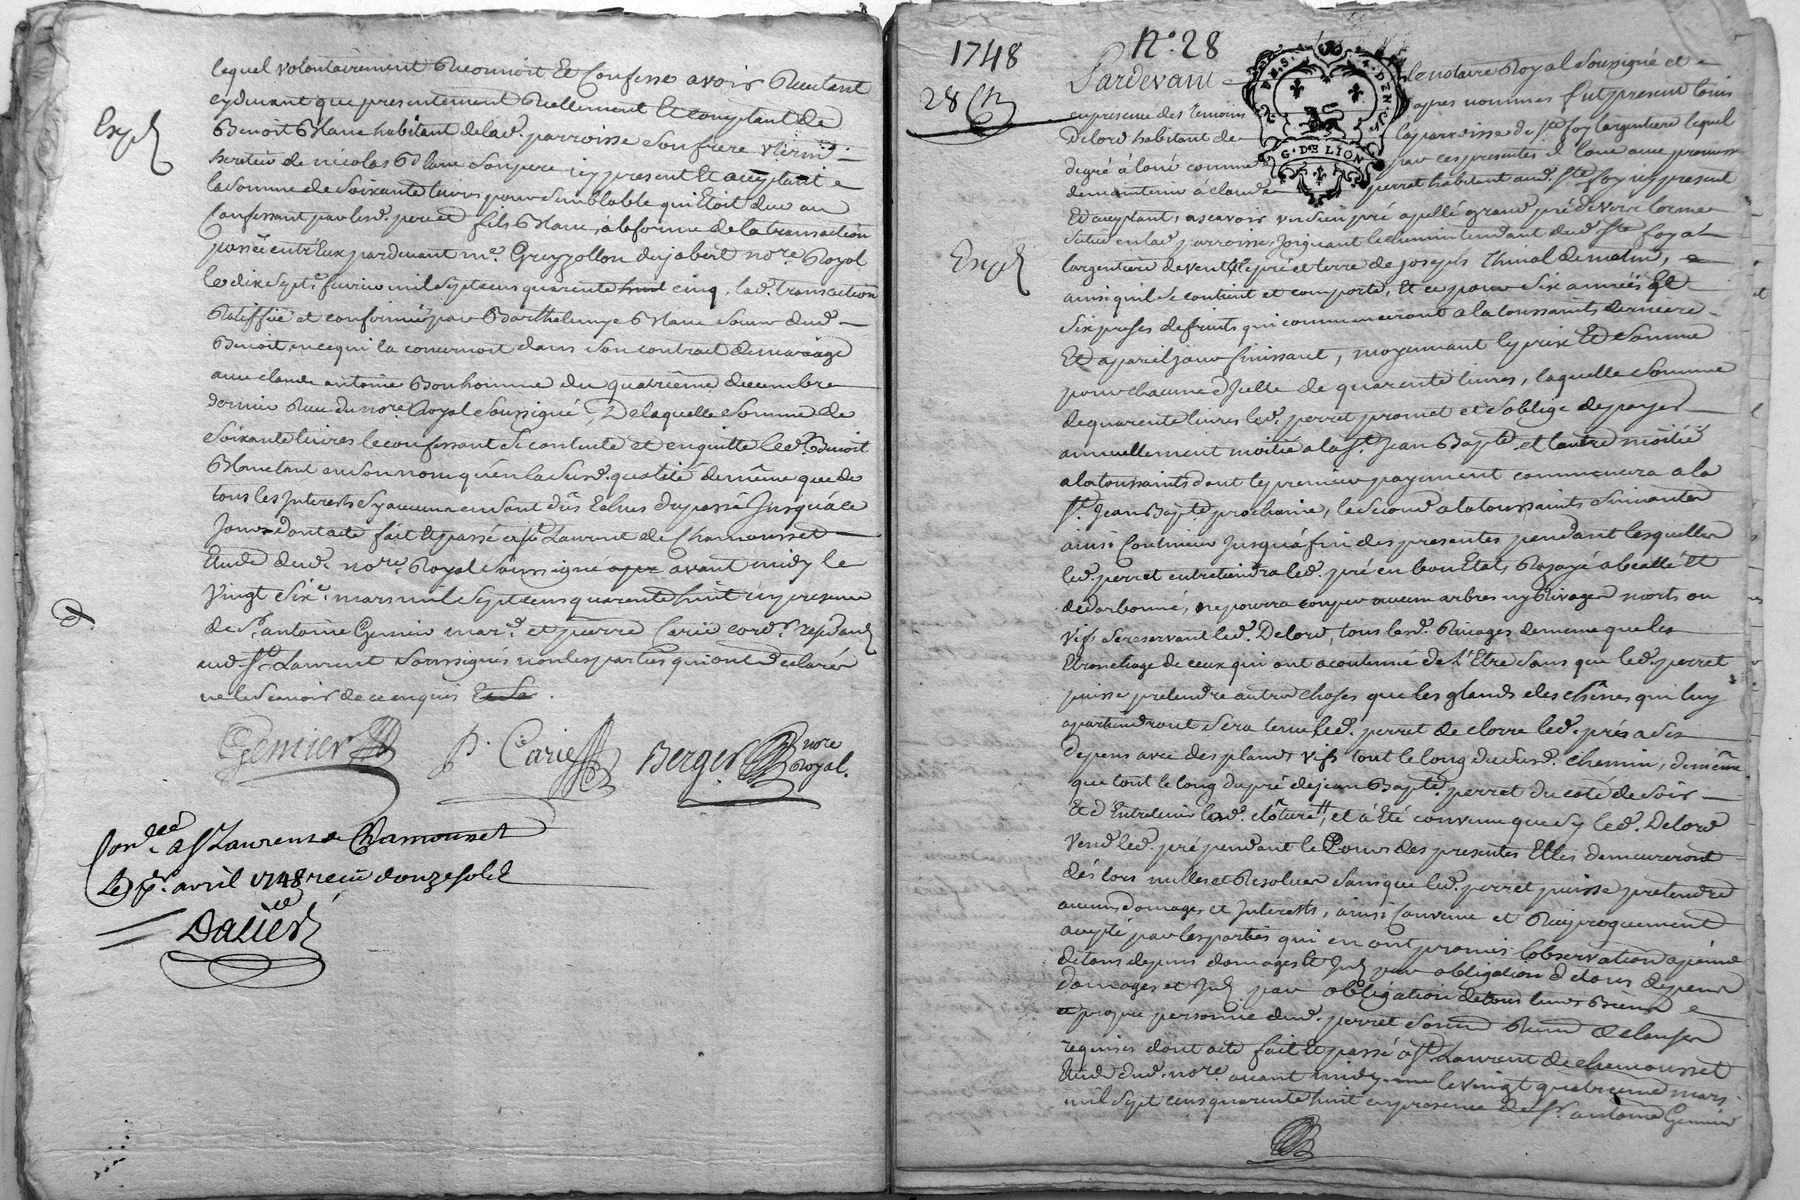 Expé
lequel volontairement Reconnoit Et Confesse avoir Reçu tant
cydevant que presentement Réellement Et comptant de
Benoit Blanc habitant de lad. parroisse son frere
heritier de nicolas Blanc son pere icy present Et acceptant
la somme de Soixante livres pour semblable qui Etoit due au
Confessant par lesd. pere et fils Blanc, a la forme de la transaction
passée entr'Eux pardevant me. Greyzollon dujabert nore. Royal
le dix Sept fevrier mil Sept cens quarente huit cinq, lad. transaction
Ratiffiée et confirmée par Barthelemye Blanc soeur dud.
Benoit, en ce qui la concernoit dans son contrat de mariage
avec claude antoine Bonhomme du quatrieme decembre
dernier Reçu du nore. Royal soussigné, De laquelle somme de
Soixante livres le confessant se contente et en quitte led. Benoit
Blanc tant en son nom qu'en la susd. qualité de même que de
tous les Interests sy aucuns en sont dûs Echus du passé Jusqu'à ce
Jour. Dont acte fait Et passé a st. Laurent de Chamousset
Etude dud. nore. Royal Soussigné avant midy le
Vingt Sixe. mars mil Sept cens quarente huit en presence
de Sr. antoine Gemier mard. et pierre Carie cordr.
aud. st. Laurent Soussignés non les parties qui ont déclaré
ne le Scavoir de ce enquis Et de
Gemier P. Carie Berger nore
Royal.
Con.lée a st Laurens de Chamousset
Le pr. avril 1748 reçu douze sols
Dalier
1748
N°. 28
28
Pardevant Le notaire Royal Soussigné et
en presence des temoins apres nommés fut present Louis
Delord habitant de la parroisse de ste foy l'argentiere lequel
de gré à loué comme par ces presentes il loue avec promesse
de maintenir à claude perret habitant aud. ste foy icy present
Et acceptant, ascavoir un sien pré apellé grand pré
G. DE LION
Expé
Situé en lad. parroisse, Joignant le chemin tendant dud. ste foy a
l'argentiere de vent, le pré et terre de joseph thinal de matin,
ainsi qu'il se contient et comporte, Et ce pour Six années Et
Six prises de fruits qui commenceront a la toussaints derniere
Et a pareil jour finissant, moyennant le prix Et somme
pour chacune d'Icelle de quarente livres, laquelle somme
de quarente livres led. perret promet et s'oblige de payer
annuellement moitié a la st. Jean Bapte. et l'autre moitié
a la toussaints dont le premier payement commencera a la
st. Jean Bapte. prochaine, le second a la toussaints suivante
ainsi Continuer Jusqu'à fin des presentes pendant lesquelles
led. perret entretiendra led. pré en bon Etat,
ne pourra couper aucuns arbres ny Rivages morts ou
vifs se reservant led. Delord, tous lesd. Rivages de meme que les
Etronchage de ceux qui ont acoutumé de l'Etre sans que led. perret
puisse pretendre autre choses que les glands des chênes qui luy
apartiendront Sera tenu led. perret de clorre led. prés a ses
depens avec des plants vifs tout le long du susd. chemin, de même
que tout le long du pré de jean Bapte. perret du coté de soir
Et d'Entretenir lad. clôture, et a Eté convenu que sy led. Delord
vend led. pré pendant le Cours des presentes Elles demeureront
dés lors nulles et Resolues sans que led. perret puisse pretendre
aucuns domages et Interests, ainsi Convenu et Reciproquement
accepté par les parties qui en ont promis l'observation a peine
de tous depens domages Et Inth par obligation de tous depens
domages et Inth par obligation de tous leurs Biens
et propre personne dud. perret soumis Renonce Et clauses
requises dont acte fait Et passé a st. Laurent de chamousset
Etude dud. nore. avant midy le vingt quatrieme mars
mil Sept cens quarente huit en presence de sr. antoine Gemier